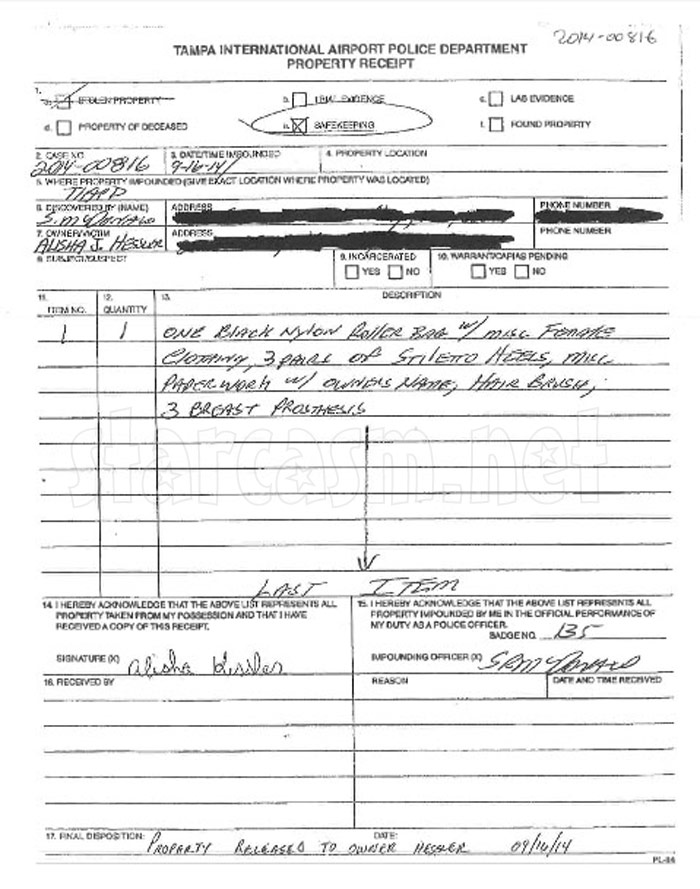 2014-00816
TAMPA INTERNATIONAL AIRPORT POLICE DEPARTMENT
PROPERTY RECEIPT
1.
a. STOLEN PROPERTY b. TRIAL EVIDENCE c. LAB EVIDENCE
d. PROPERTY OF DECEASED e. SAFEKEEPING f. FOUND PROPERTY
2. CASE NO. 3. DATE/TIME IMPOUNDED 4. PROPERTY LOCATION
2014-00816 9-16-14/
5. WHERE PROPERTY IMPOUNDED (GIVE EXACT LOCATION WHERE PROPERTY WAS LOCATED)
TIAPD
6. DISCOVERED BY (NAME) ADDRESS PHONE NUMBER
S. McDonald
7. OWNER/VICTIM ADDRESS PHONE NUMBER
ALISHA J. HESSLER
8. SUBJECT/SUSPECT 9. INCARCERATED 10. WARRANT/CAPIAS PENDING
YES NO YES NO
11. ITEM NO. 12. QUANTITY 13. DESCRIPTION
1 1 ONE BLACK NYLON ROLLER BAG W/ MISC FEMALE
CLOTHING, 3 PAIRS OF STILETO HEELS, MISC
PAPERWORK W/ OWNERS NAME, HAIR BRUSH,
3 BREAST PROSTHESIS
starcasm.net
LAST ITEM
14. I HEREBY ACKNOWLEDGE THAT THE ABOVE LIST REPRESENTS ALL
PROPERTY TAKEN FROM MY POSSESSION AND THAT I HAVE
RECEIVED A COPY OF THIS RECEIPT.
SIGNATURE (X) Alisha Hessler
15. I HEREBY ACKNOWLEDGE THAT THE ABOVE LIST REPRESENTS ALL
PROPERTY IMPOUNDED BY ME IN THE OFFICIAL PERFORMANCE OF
MY DUTY AS A POLICE OFFICER.
BADGE NO. 135
IMPOUNDING OFFICER (X) SRMcDonald
16. RECEIVED BY REASON DATE AND TIME RECEIVED
17. FINAL DISPOSITION: DATE:
PROPERTY RELEASED TO OWNER HESSLER 09/16/14